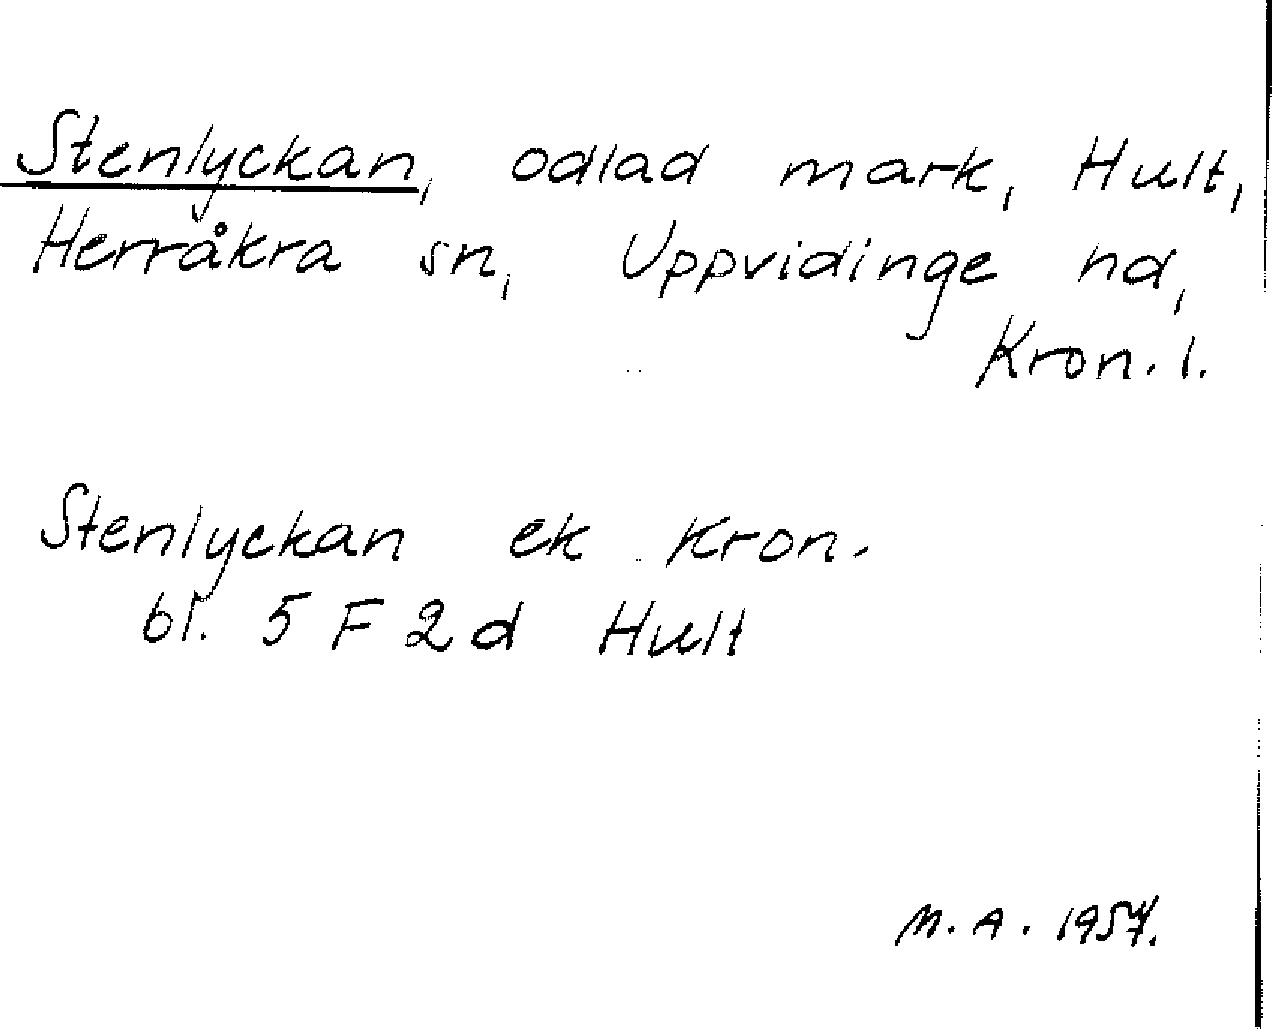 Stenlyckan, odlad mark, Hult,
Herråkra sn, Uppvidinge hd,
Kron. l.
Stenlyckan ek Kron.
bl. 5 F 2 d Hult
M. A. 1957.